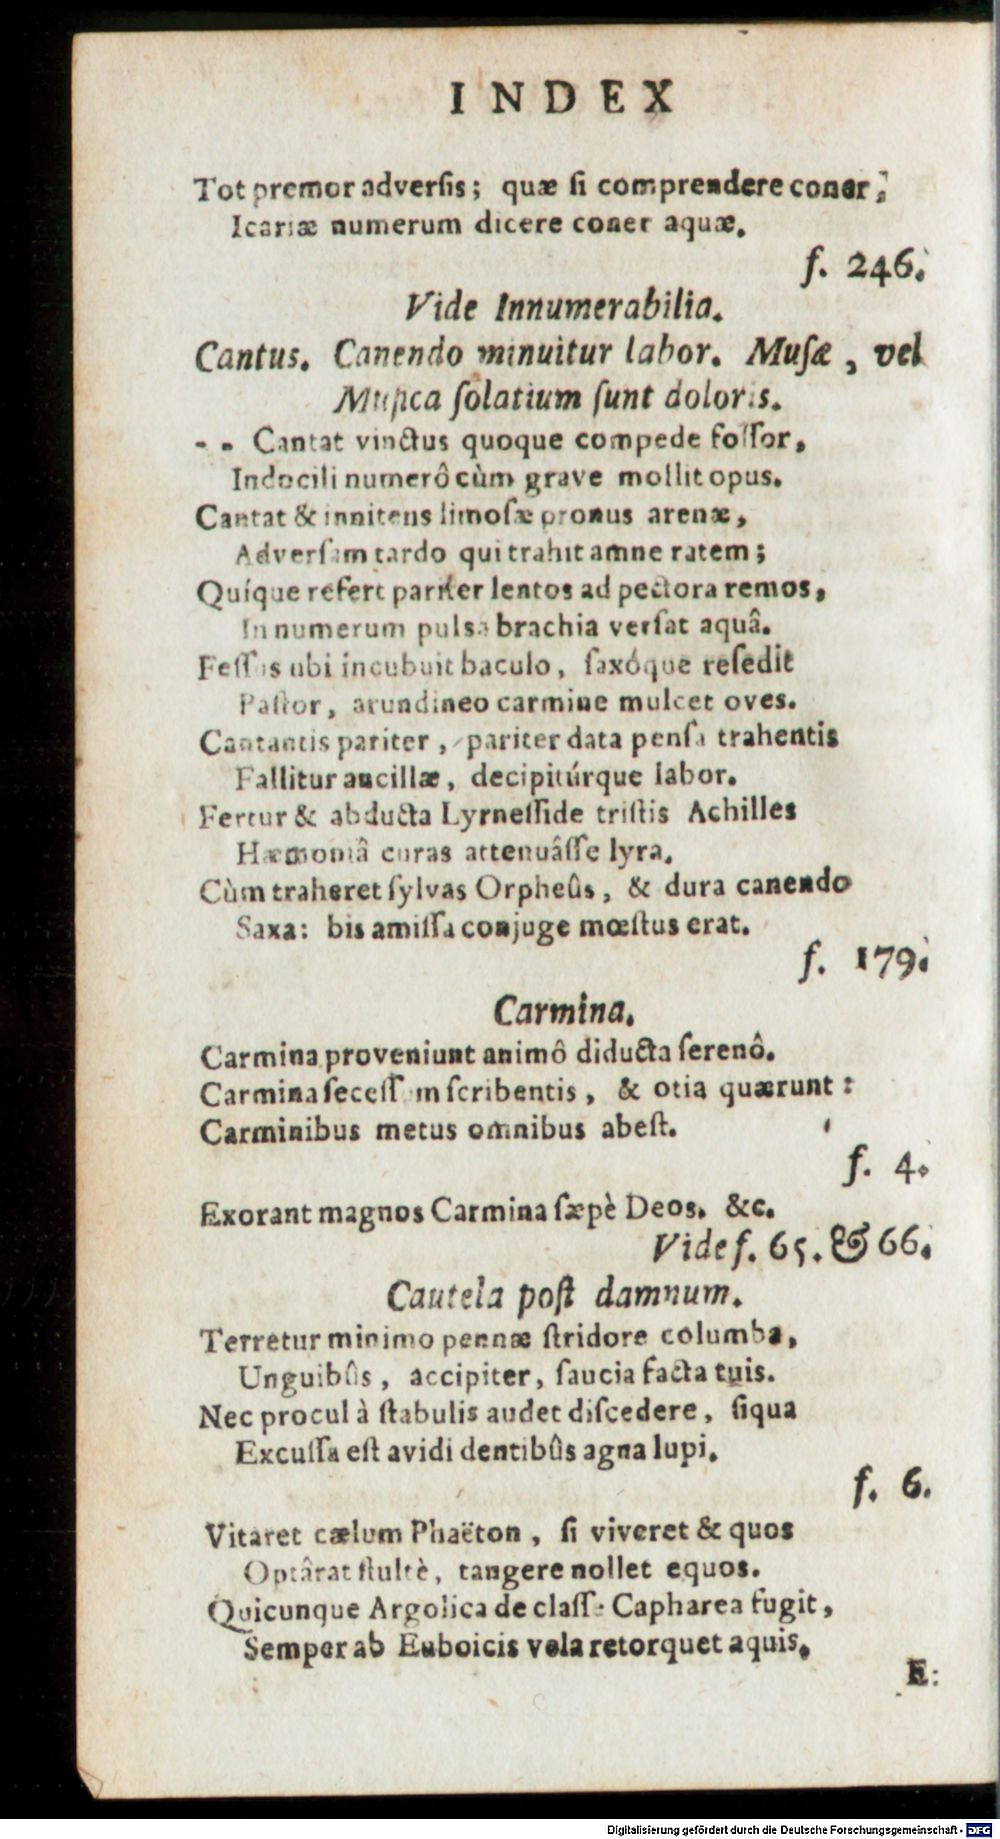 INDEX
Tot premor adverſis; quæ ſi comprendere coner,
Icariæ numerum dicere coner aquæ.
f. 246.
Vide Innumerabilia.
Cantus. Canendo minuitur labor. Muſæ, vel
Muſica ſolatium ſunt doloris.
- - Cantat vinctus quoque compede foſſor,
Indocili numerô cùm grave mollit opus.
Cantat & innitens limoſæ pronus arenæ,
Adverſam tardo qui trahit amne ratem;
Quíque refert pariter lentos ad pectora remos,
In numerum pulsa brachia verſat aquâ.
Feſſus ubi incubuit baculo, ſaxóque reſedit
Paſtor, arundineo carmine mulcet oves.
Cantantis pariter, pariter data penſa trahentis
Fallitur ancillæ, decipitúrque labor.
Fertur & abducta Lyrneſſide triſtis Achilles
Hæmoniâ curas attenuâſſe lyra.
Cùm traheret ſylvas Orpheûs, & dura canendo
Saxa: bis amiſſa conjuge mœſtus erat.
f. 179.
Carmina.
Carmina proveniunt animô diducta ſerenô.
Carmina ſeceſſum ſcribentis, & otia quærunt:
Carminibus metus omnibus abeſt.
f. 4.
Exorant magnos Carmina ſæpè Deos. &c.
Vide f. 65. & 66.
Cautela poſt damnum.
Terretur minimo pennæ ſtridore columba,
Unguibûs, accipiter, ſaucia facta tuis.
Nec procul à ſtabulis audet diſcedere, ſiqua
Excuſſa eſt avidi dentibûs agna lupi.
f. 6.
Vitaret cælum Phaëton, ſi viveret & quos
Optârat ſtultè, tangere nollet equos.
Quicunque Argolica de claſſe Capharea fugit,
Semper ab Euboicis vela retorquet aquis.
E:
Digitalisierung gefördert durch die Deutsche Forschungsgemeinschaft - DFG